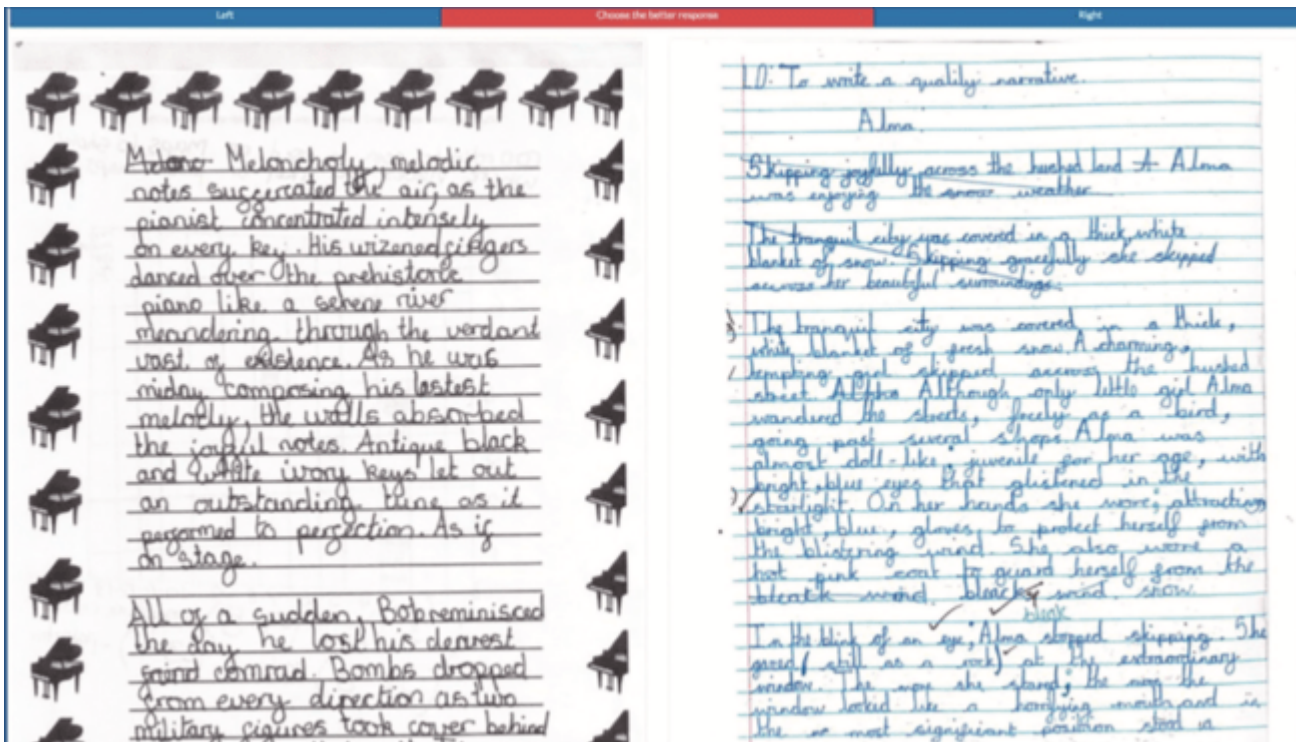 Left
Choose the better response
Right
Melanc Meloncholy, melodic
notes suggercated the air, as the
pianist concentrated intensely
on every key. His wizened fingers
danced over the prehistoric
piano like a serene river
meandering through the verdant
vast of existence. As he was
miday composing his lastest
melody, the walls absorbed
the joyful notes. Antique black
and white ivory keys let out
an outstanding tune as it
performed to perfection. As if
on stage.
All of a sudden, Bob reminisced
the day he lost his dearest
comrad. Bombs dropped
from every direction as two
military figures took cover behind
LO: To write a quality narrative.
Alma.
Skipping joyfully across the hushed land A Alma
was enjoying the snow weather
The tranquil city was covered in a thick, white
blanket of snow. Skipping gracefully she skipped
across her beautiful surroundings.
The tranquil city was covered in a thick,
white blanket of fresh snow. A charming,
tempting girl skipped across the hushed
street. Although only little girl Alma
wandered the streets, freely as a bird,
going past several shops. Alma was
almost doll-like, juvenile for her age, with
bright, blue eyes that glistened in the
starlight. On her hands she wore; attracting
bright, blue, gloves to protect herself from
the blistering wind. She also wore a
hot pink coat to guard herself from the
wind. snow
bleak
In the blink of an eye, Alma stopped skipping. She
gazed (still as a rock) at the extraordinary
window. The more she stared; the more the
window looked like a horrifying mouth and in
the most significant position stood a